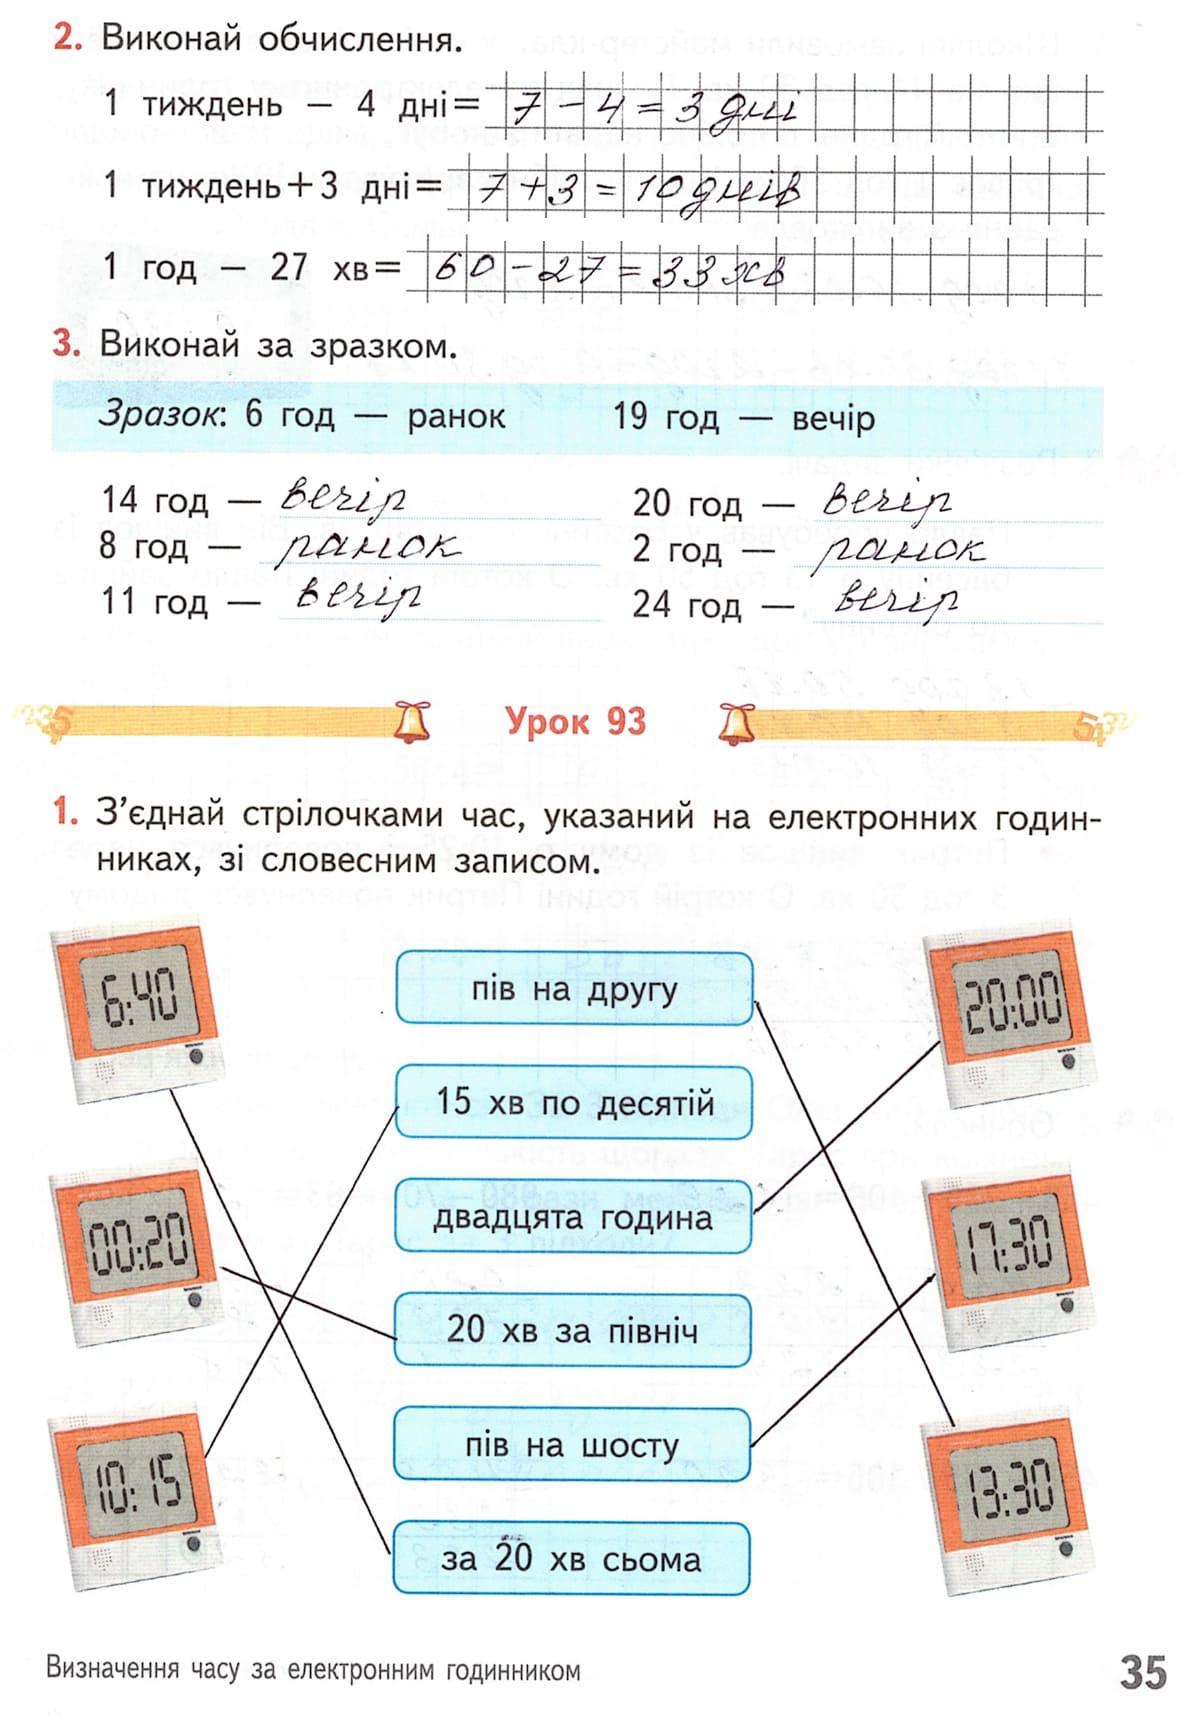 2. Виконай обчислення.
1 тиждень – 4 дні = 7 – 4 = 3 дні
1 тиждень + 3 дні = 7 + 3 = 10 днів
1 год – 27 хв = 60 – 27 = 33 хв
3. Виконай за зразком.
Зразок: 6 год — ранок 19 год — вечір
14 год — вечір 20 год — вечір
8 год — ранок 2 год — ранок
11 год — вечір 24 год — вечір
Урок 93
1. З’єднай стрілочками час, указаний на електронних годин-
никах, зі словесним записом.
6:40 пів на другу 20:00
15 хв по десятій
00:20 двадцята година 17:30
20 хв за північ
10:15 пів на шосту 13:30
за 20 хв сьома
Визначення часу за електронним годинником 35